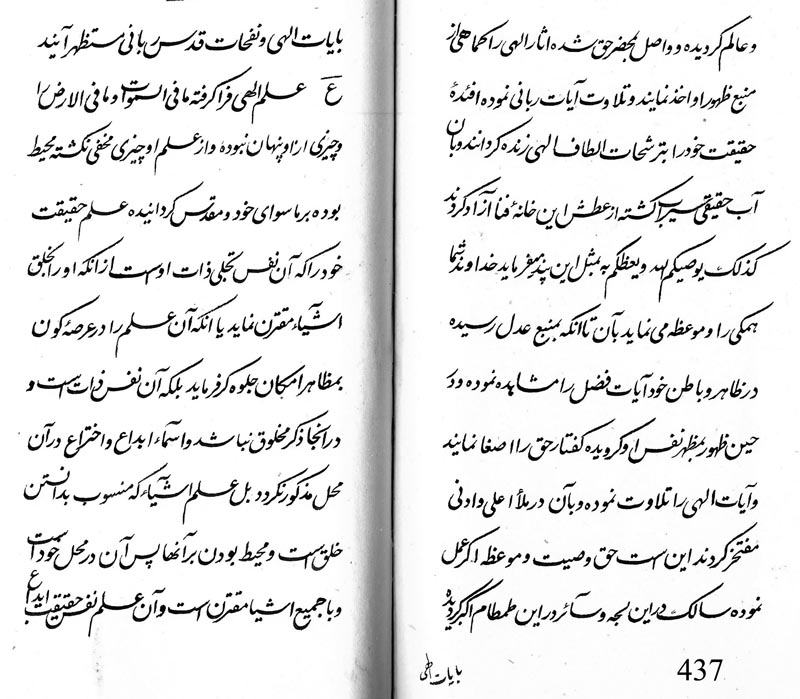 و عالم گردیده و واصل بمحضر حق شده اثار الهی را کماهی از
منبع ظهور او اخذ نمایند و تلاوت آیات ربانی نموده افئدۀ
حقیقت خود را بترشحات الطاف الهی زنده گردانند و بان
آب حقیقی سیراب گشته از عطش این خانۀ فنا آزاد گردند
کذلک یوصیکم الله و یعظکم به بمثل این پند میفرماید خداوند شما
همکی را و موعظه می نماید بآن تا انکه بمنبع عدل رسیده
در ظاهر و باطن خود آیات فضل را مشاهده نموده و در
حین ظهور بمظهر نفس او گرویده گفتار حق را اصغا نمایند
و آیات الهی را تلاوت نموده و بآن در ملأ اعلی و ادنی
مفتخر گردند این است حق وصیت و موعظه اگر عمل
نموده سالک در این لجه و سائر در این طمطام اکبر گردیده
بایات الهی
437
بایات الهی و نفحات قدس ربانی مستظهر آیند
ع علم الهی فرا گرفته ما فی السموات و ما فی الارض را
و چیزی از او پنهان نبوده و از علم او چیزی مخفی نکشته محیط
بوده بر ماسوای خود و مقدس گردانیده علم حقیقت
خود را که آن نفس تجلی ذات اوست از انکه او را بخلق
اشیاء مقترن نماید یا انکه آن علم را در عرصۀ کون
بمظاهر امکان جلوه گر فرماید بلکه آن نفس ذات است و
در انجا ذکر مخلوق نباشد و اسماء ابداع و اختراع در آن
محل مذکور نگردد بل علم اشیاء که منسوب بدانستن
خلق است و محیط بودن بر آنها پس آن در محل خود است
و با جمیع اشیا مقترن است و آن علم نفس حقیقت ابداع